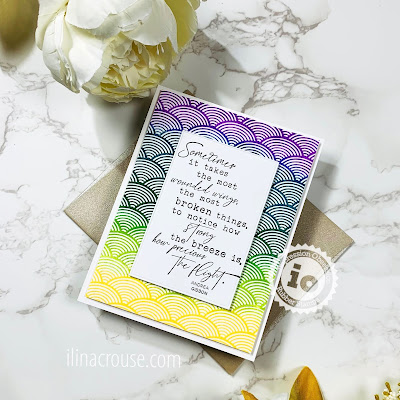 Sometimes
it takes
the most
wounded wings,
the most
broken things,
to notice how
strong
the breeze is,
how precious
the flight.
ANDREA
GIBSON
ic
ilinacrouse.com